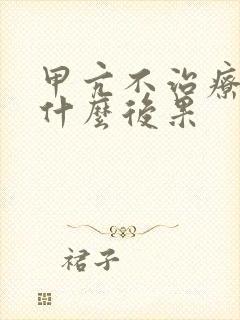 甲亢不治療
什麼後果
裙子